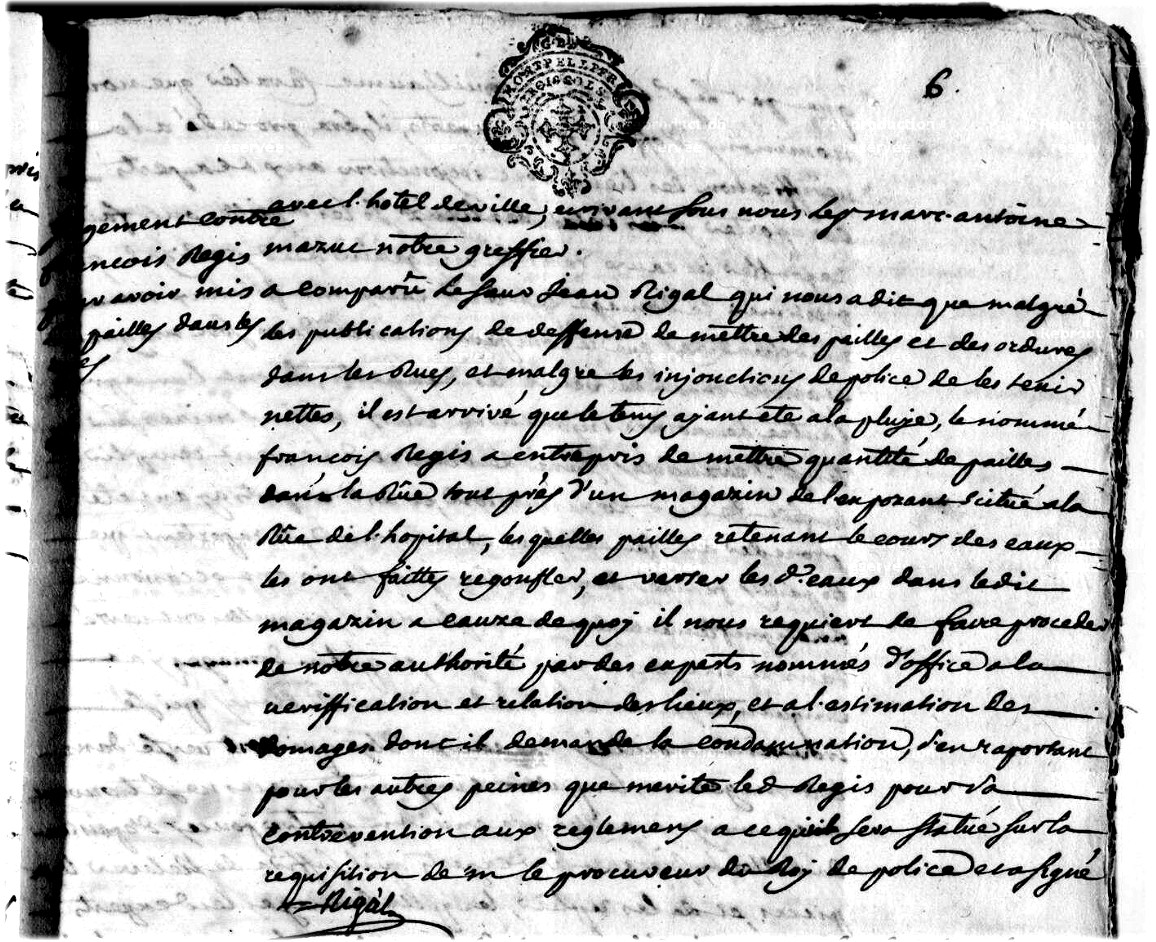 6.
avec l'hotel de ville, ecrivant sous nous le sr marc antoine
mazuc notre greffier.
gement contre
ncois Regis
avoir mis
pailles dans les
a comparû le sieur Jean Rigal qui nous a dit que malgré
les publications de deffense de mettre des pailles et des ordures
dans les Rues, et malgre les injonctions de police de les tenir
nettes, il est arrivé que le tems ajant eté a la pluje, le nommé
francois Regis a entrepris de mettre quantité de pailles
dans la Rüe tout prés d'un magazin de l'exposant scitué a la
Rüe de l'hopital, lesquelles pailles retenant le cours des eaux
les ont faittes regonfler, et verser les d. eaux dans ledit
magazin a cauze de quoj il nous requiert de faire proceder
de notre authorité par des experts nommés d'office a la
veriffication et relation des lieux, et a l'estimation des
domages dont il demande la condamnation, s'en raportant
pour les autres peines que merite led Regis pour sa
contrevention aux reglemens a ce qu'il sera statué sur la
requisition de m le procureur du Roj de police et a signé
Rigal